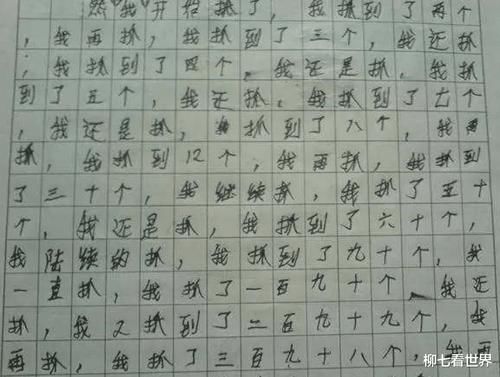 然我开始抓了，我抓到了两个
，我再抓，我抓到了三个，我还抓
，我抓到了四个，我还是抓，我抓
到了五个，我还抓，我抓到了七个
，我还是抓，抓到了八个，我
抓，我抓到12个，我再抓，我抓到
了三十个，我继续抓，我抓了五十
个，我还是抓，我抓到了六十个，
我陆续的抓，我抓到了九十个，我
一直抓，我抓了一百九十个，我还
抓，我又抓到了二百九十九个，我
再抓，我抓了三百九十八个，我
柳七看世界